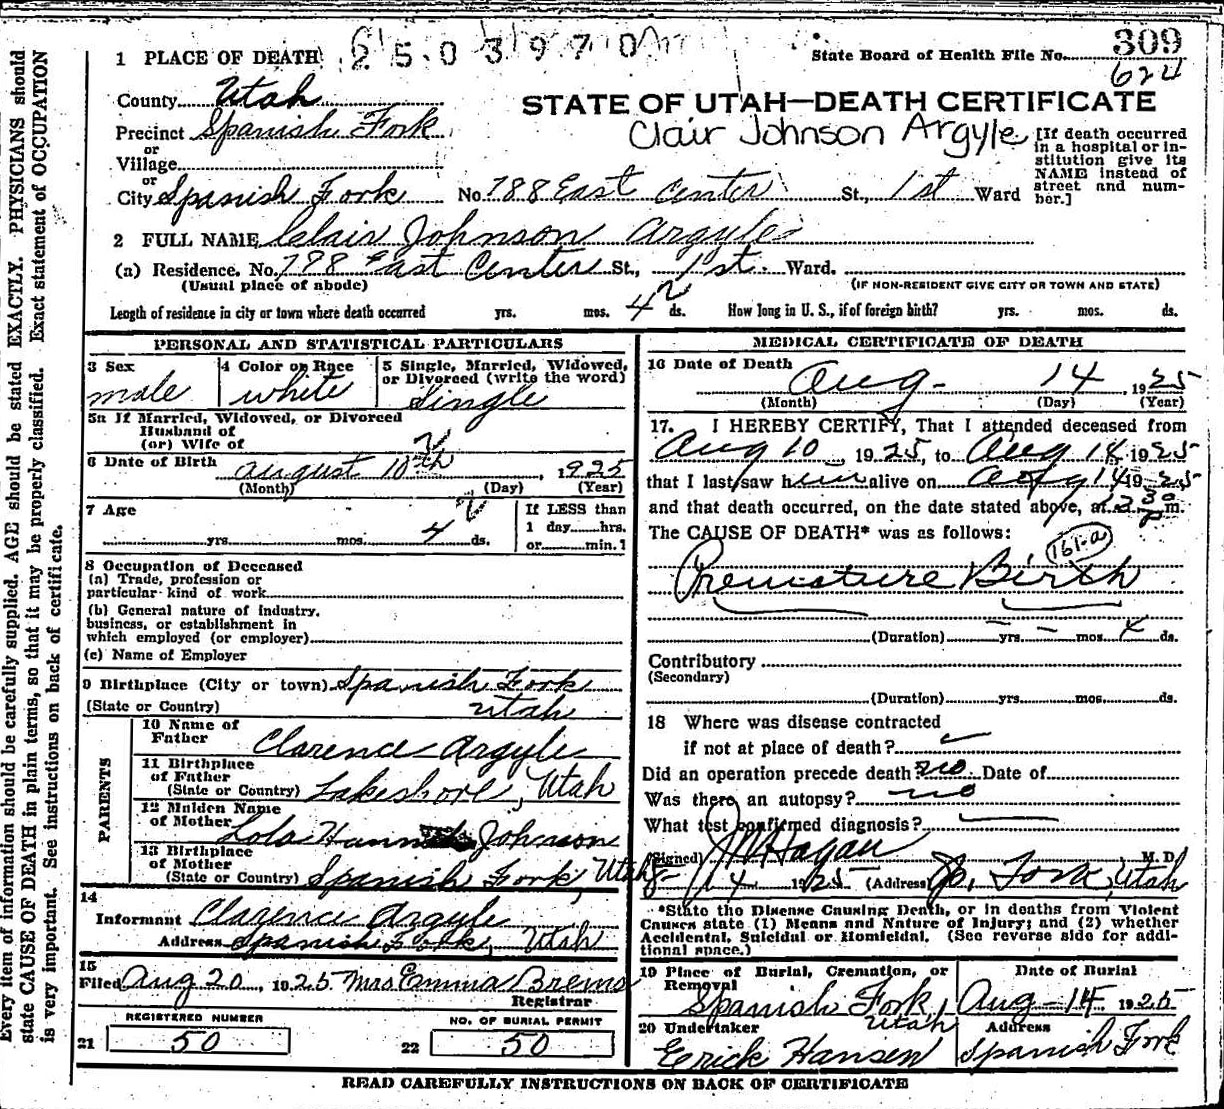 Every item of information should be carefully supplied. AGE should be stated EXACTLY. PHYSICIANS should
state CAUSE OF DEATH in plain terms, so that it may be properly classified. Exact statement of OCCUPATION
is very important. See instructions on back of certificate.
2503970
1 PLACE OF DEATH
State Board of Health File No. 309
624
County Utah
STATE OF UTAH—DEATH CERTIFICATE
Precinct Spanish Fork
Clair Johnson Argyle
or
Village
or
City Spanish Fork No. 788 East Center St., 1st Ward
[If death occurred
in a hospital or in-
stitution give its
NAME instead of
street and num-
ber.]
2 FULL NAME Clair Johnson Argyle
(a) Residence. No. 788 East Center St., 1st. Ward.
(Usual place of abode)
(IF NON-RESIDENT GIVE CITY OR TOWN AND STATE)
Length of residence in city or town where death occurred yrs. mos. 4 ds. How long in U. S., if of foreign birth? yrs. mos. ds.
PERSONAL AND STATISTICAL PARTICULARS
3 Sex
male
4 Color or Race
white
5 Single, Married, Widowed,
or Divorced (write the word)
Single
5a If Married, Widowed, or Divorced
Husband of
(or) Wife of
6 Date of Birth August 10th, 1925
(Month) (Day) (Year)
7 Age
yrs. mos. 4 ds.
If LESS than
1 day hrs.
or min. 1
8 Occupation of Deceased
(a) Trade, profession or
particular kind of work
(b) General nature of industry.
business, or establishment in
which employed (or employer)
(c) Name of Employer
9 Birthplace (City or town) Spanish Fork
(State or Country) Utah
PARENTS
10 Name of
Father Clarence Argyle
11 Birthplace
of Father
(State or Country) Lakeshore, Utah
12 Maiden Name
of Mother Lola Johnson
13 Birthplace
of Mother
(State or Country) Spanish Fork, Utah
14
Informant Clarence Argyle
Address Spanish Fork, Utah
15
Filed Aug 20, 1925 Mrs Emma Brems
Registrar
REGISTERED NUMBER
21 50
NO. OF BURIAL PERMIT
22 50
MEDICAL CERTIFICATE OF DEATH
16 Date of Death
Aug. 14 1925
(Month) (Day) (Year)
17. I HEREBY CERTIFY, That I attended deceased from
Aug 10, 1925, to Aug 14, 1925
that I last saw him alive on Aug 14 1925
and that death occurred, on the date stated above, at 12 30 P m.
The CAUSE OF DEATH* was as follows:
161-a
Premature Birth
(Duration) – yrs. – mos. 4 ds.
Contributory
(Secondary)
(Duration) yrs. mos. ds.
18 Where was disease contracted
if not at place of death?
Did an operation precede death no. Date of
Was there an autopsy? no
What test confirmed diagnosis?
(Signed) J W Hagan M. D.
8-14 1925 (Address) Sp. Fork, Utah
*State the Disease Causing Death, or in deaths from Violent
Causes state (1) Means and Nature of Injury; and (2) whether
Accidental, Suicidal or Homicidal. (See reverse side for addi-
tional space.)
19 Place of Burial, Cremation, or
Removal
Spanish Fork,
Utah
Date of Burial
Aug-14 1925
20 Undertaker
Erick Hansen
Address
Spanish Fork
READ CAREFULLY INSTRUCTIONS ON BACK OF CERTIFICATE